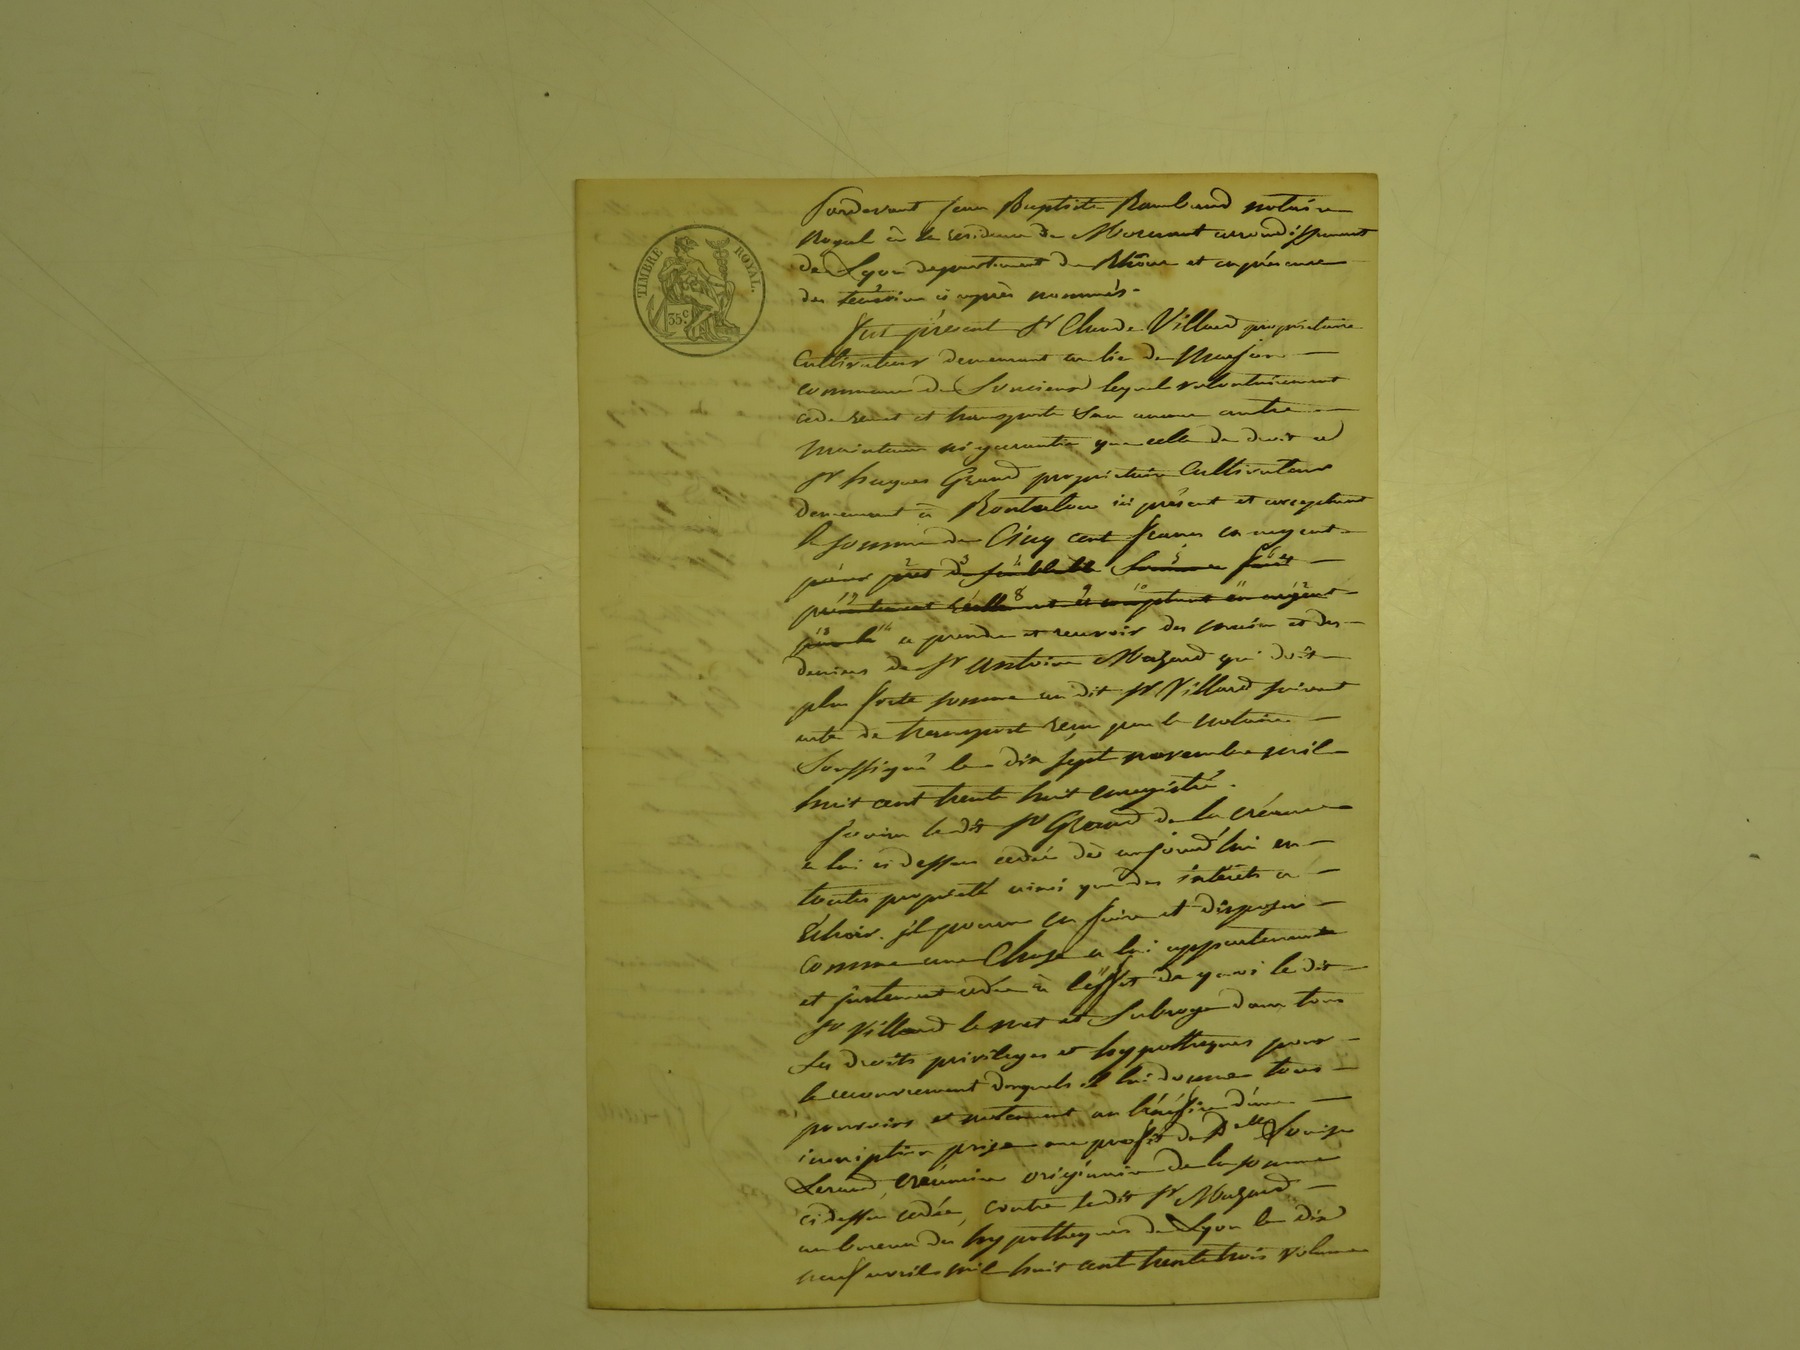 TIMBRE ROYAL.
35c
Pardevant Jean Baptiste Rambaud notaire
Royal à la résidence de Mornant arrondissement
de Lyon departement du Rhône et en présence
des témoins ci après nommés.
Fut présent Sr Claude Villard propriétaire
Cultivateur demeurant au lieu de
commune de Soucieux lequel volontairement
cede remet et transporte sans aucune autre
maintenue ni garantie que celle de droit ad
Sr Jacques Grand propriétaire Cultivateur
demeurant à Rontalon ici présent et acceptant
la somme de Cinq cent francs en argent
pour prêt de semblable Somme fait
présentement réellement et comptant en argent
a prendre et recevoir des mains et des
deniers de Sr Antoine Mazard qui doit
plus forte somme au dit Sr Villard suivant
acte de transport reçu par le notaire
Soussigné le dix sept novembre mil
huit cent trente huit enregistré.
Jouira ledit Sr Grand de la créance
a lui ci dessus cédée dès aujourd'hui en
toutes propriété ainsi que des intérêts a
Echoir. il pourra en faire et disposer
comme une Chose a lui appartenante
et justement cédée à l'effet de quoi le dit
Sr Villard le met et Subroge dans tous
Ses droits privileges et hypotheques pour
le recouvrement desquels il lui donne tous
pouvoirs et notament au bénéfice d'une
inscription prise au profit de Delle Louise
créancière originaire de la somme
ci dessus cédée, contre ledit Sr Mazard
au bureau des hypotheques de Lyon le dix
neuf avril mil huit cent trente trois volume